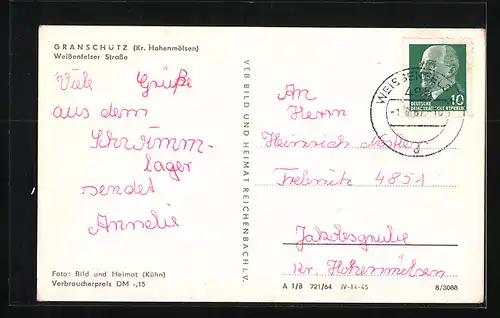 GRANSCHÜTZ (Kr. Hohenmölsen)
Weißenfelser Straße
Viele Grüße
aus dem
Schwimm-
lager
sendet
Annelie
Foto: Bild und Heimat (Kühn)
Verbraucherpreis DM -,15
VEB BILD UND HEIMAT REICHENBACH i. V.
DEUTSCHE
DEMOKRATISCHE REPUBLIK
10
WEISSENFELS
An
Herrn
Heinrich
Trebnitz 4851
Jakobsgrube
Kr. Hohenmölsen
A 1/B 721/64 IV-14-45 8/3088